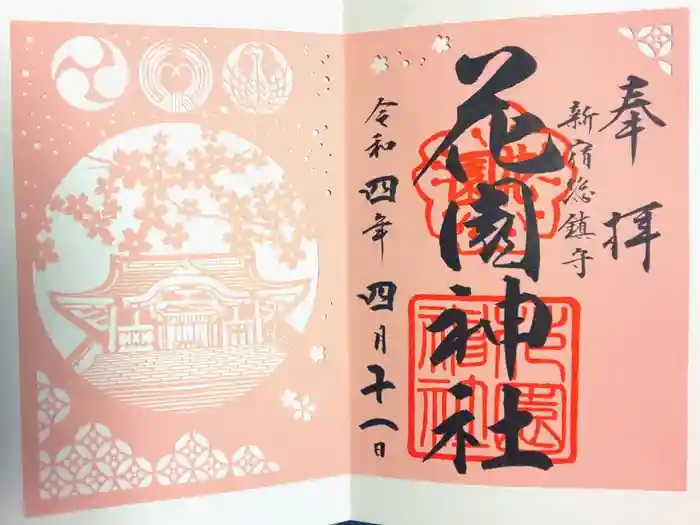 奉拝
新宿総鎮守
花園神社
花園神社
令和四年四月十八日